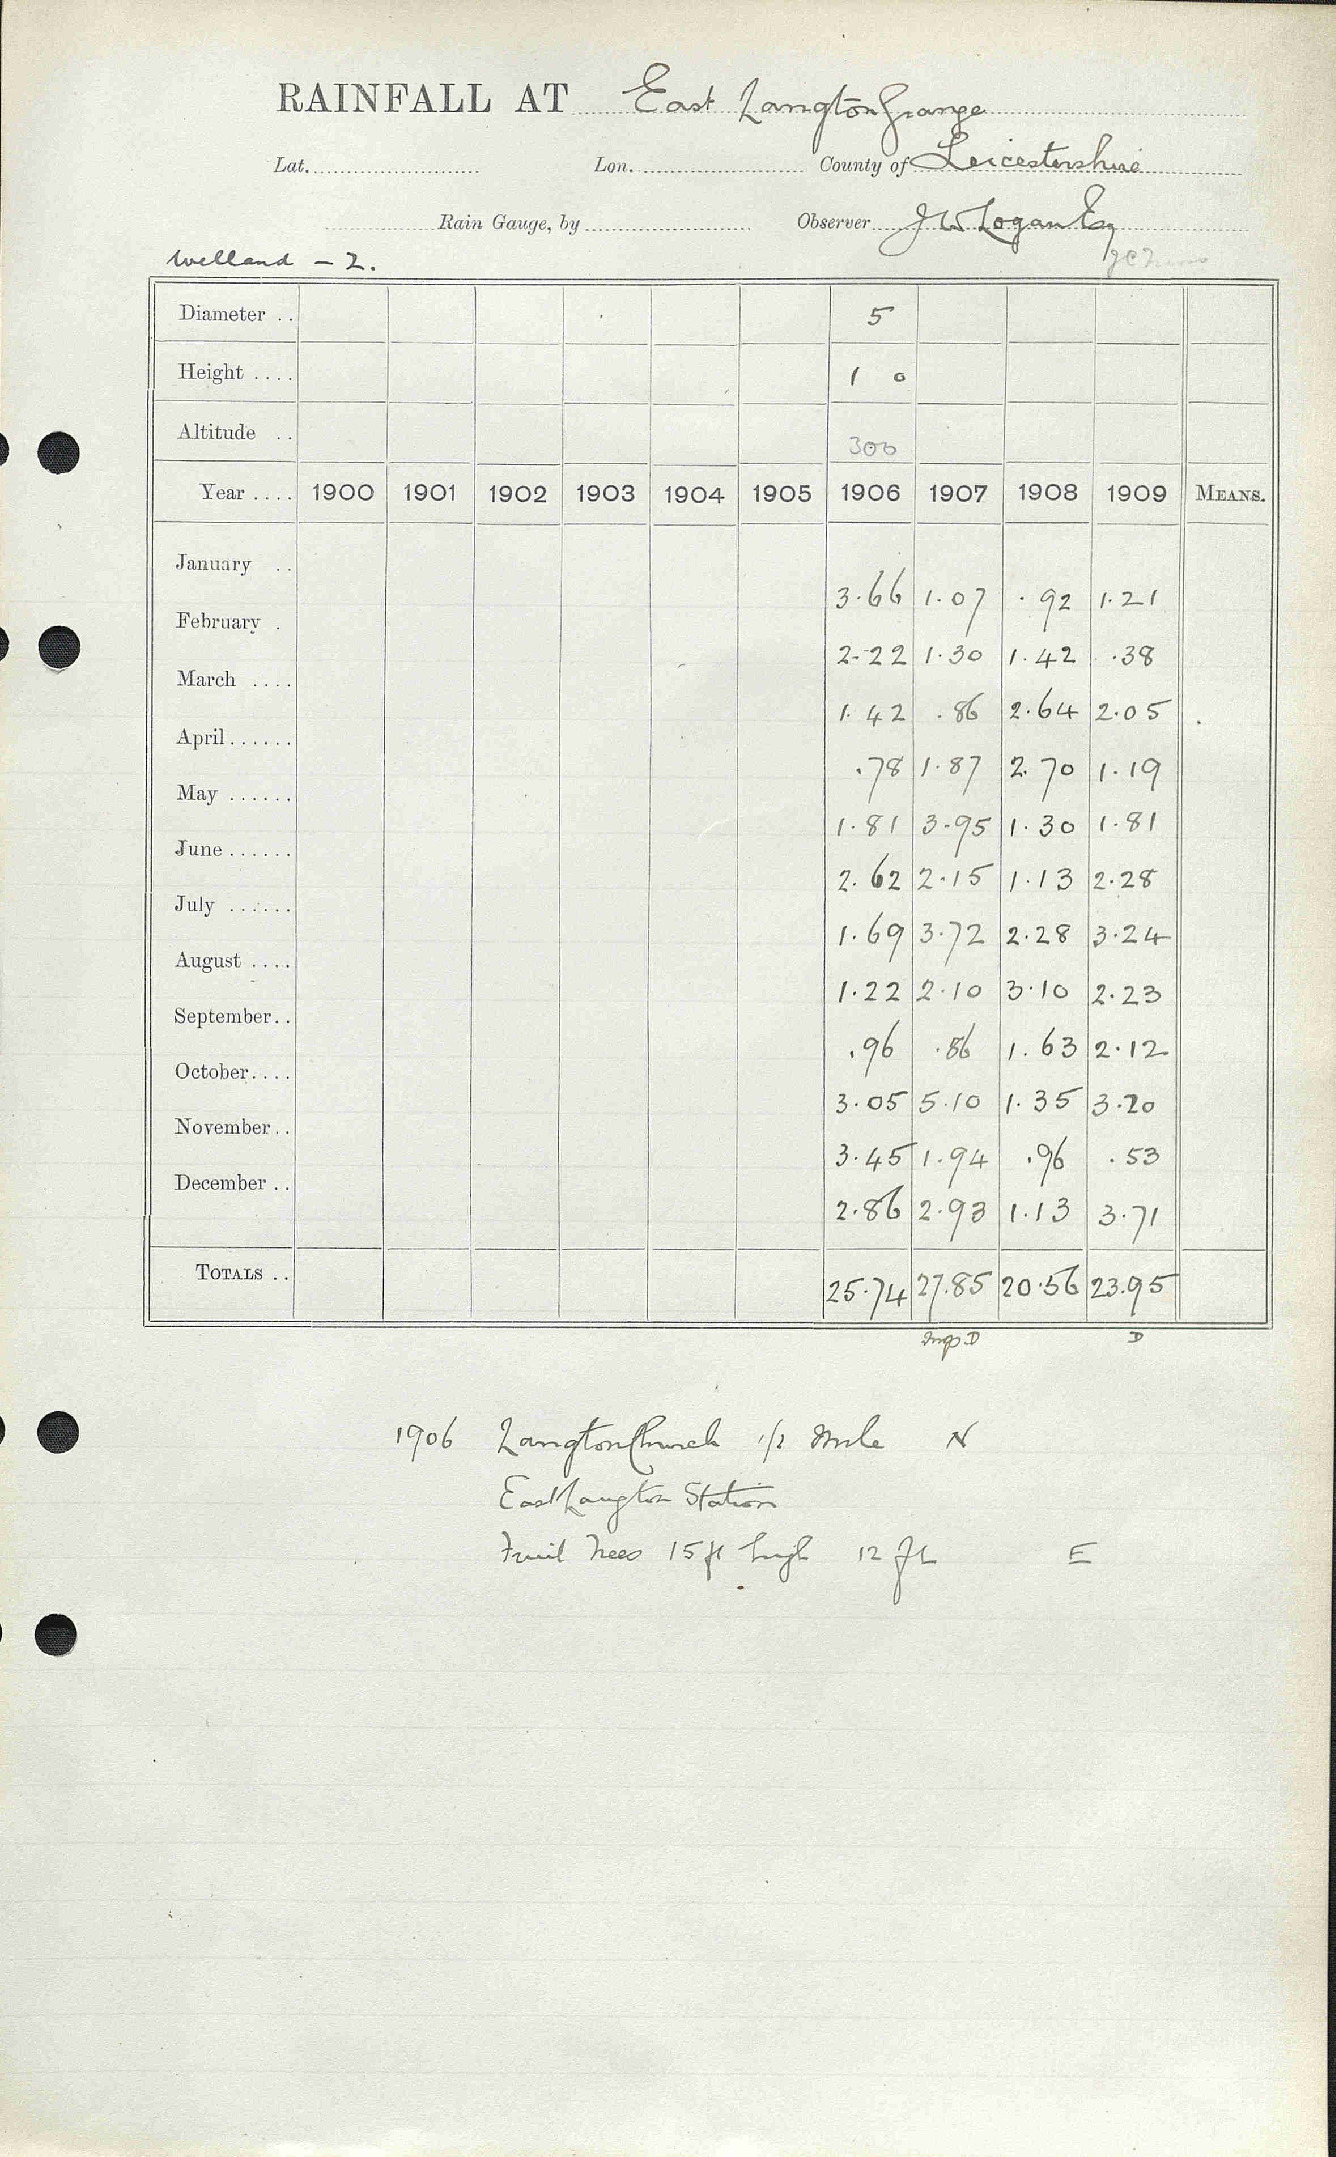 RAINFALL AT East Langton Grange
Lat. Lon. County of Leicestershire
Rain Gauge, by Observer J W Logan Esq
Welland - 2.
Diameter .. 5
Height .... 1 0
Altitude .. 300
Year .... 1900 1901 1902 1903 1904 1905 1906 1907 1908 1909 MEANS.
January .. 3.66 1.07 .92 1.21
February . 2.22 1.30 1.42 .38
March .... 1.42 .86 2.64 2.05
April...... .78 1.87 2.70 1.19
May ...... 1.81 3.95 1.30 1.81
June...... 2.62 2.15 1.13 2.28
July ...... 1.69 3.72 2.28 3.24
August .... 1.22 2.10 3.10 2.23
September.. .96 .86 1.63 2.12
October.... 3.05 5.10 1.35 3.20
November.. 3.45 1.94 .96 .53
December .. 2.86 2.93 1.13 3.71
TOTALS .. 25.74 27.85 20.56 23.95
D D
1906 Langton Church 1/2 Mile N
East Langton Station
Fruit Trees 15 ft high 12 ft E